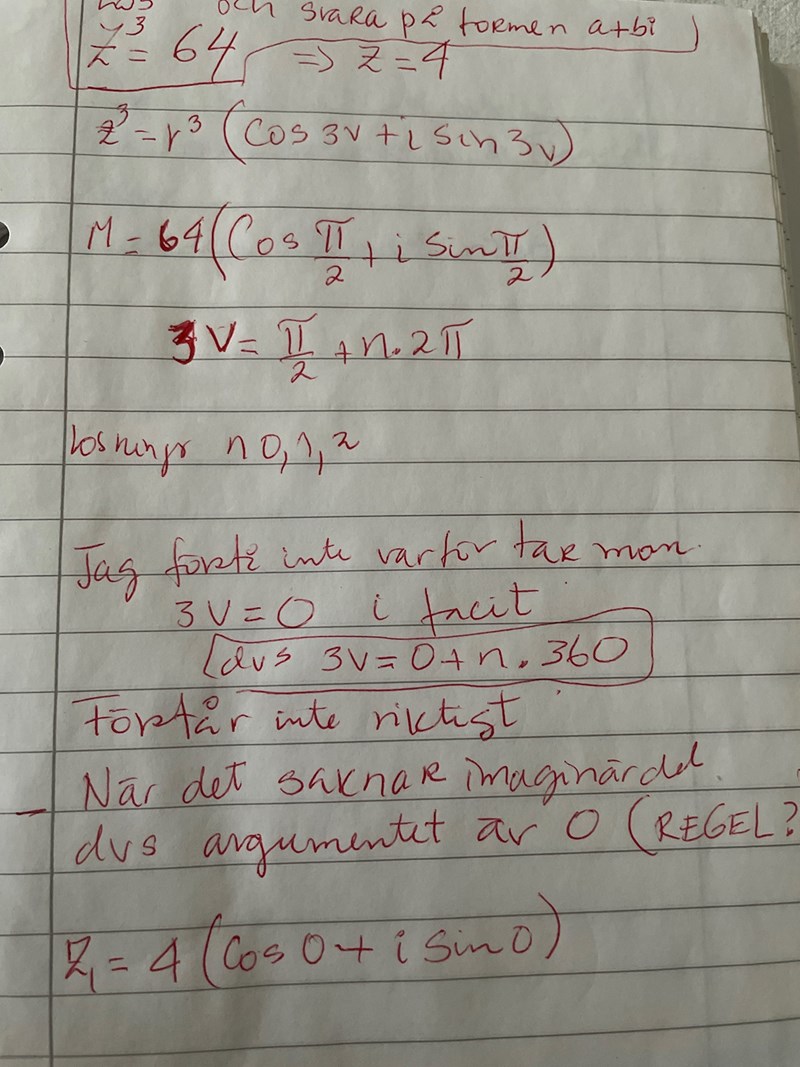 och svara på formen a+bi
z³ = 64 => z = 4
z³ = r³ (cos 3v + i sin 3v)
M = 64 (Cos π/2 + i Sin π/2)
3v = π/2 + n·2π
losningr n 0,1,2
Jag förstå inte varför tar man
3v = 0 i facit
dvs 3v = 0 + n·360
Förstår inte riktigt
- När det saknar imaginärdel.
dvs argumentet är 0 (REGEL?
Z₁ = 4 (cos 0 + i Sin 0)